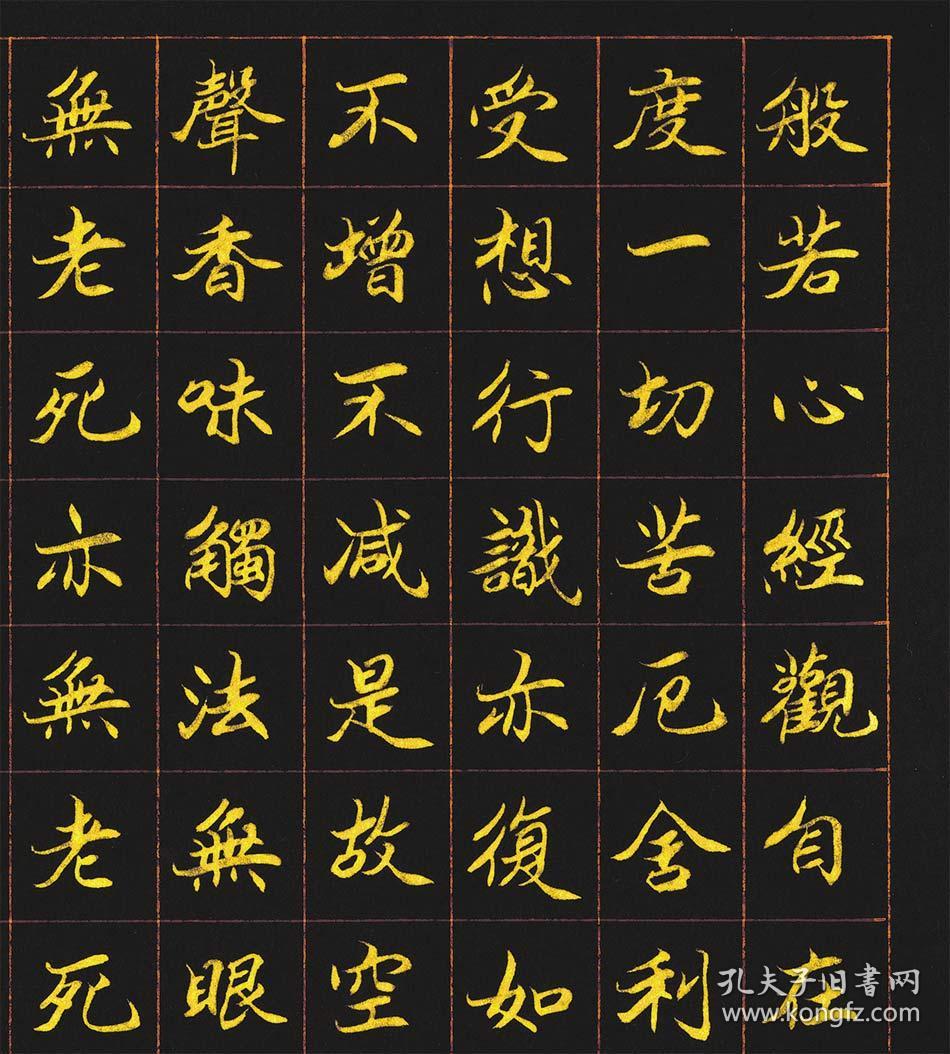 般若心經觀自在
度一切苦厄舍利
受想行識亦復如
不增不减是故空
聲香味觸法無眼
無老死亦無老死
孔夫子旧书网
www.kongfz.com